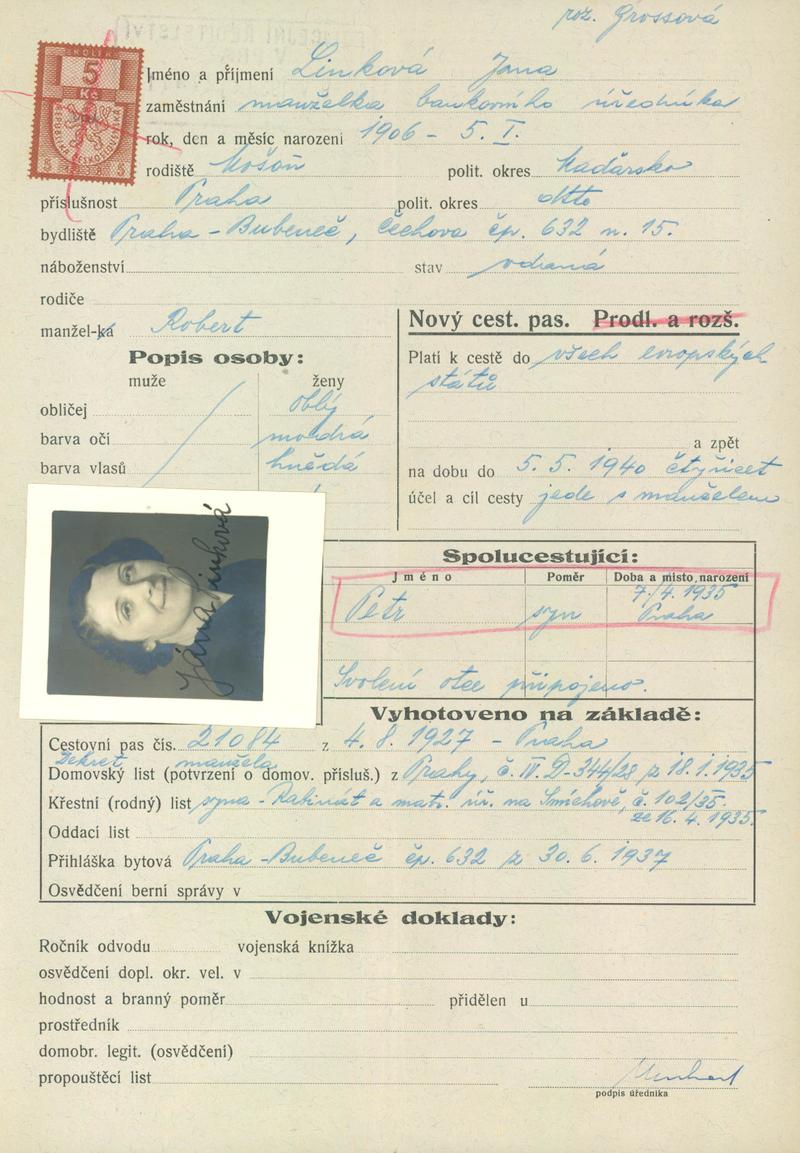 roz. Grossová
KOLEK
5
Kč
REPUBLIKA ČESKOSLOVENSKÁ
5 5
Jméno a příjmení Linková Jana
zaměstnání manželka bankovního úředníka
rok, den a měsíc narození 1906 – 5. I.
rodiště Mošoň polit. okres Maďarsko
příslušnost Praha polit. okres dtto
bydliště Praha – Bubeneč, Čechova čp. 632 n. 15.
náboženství stav vdaná
rodiče
manžel-ka Robert
Nový cest. pas. Prodl. a rozš.
Popis osoby:
muže ženy
obličej oblý
barva očí modrá
barva vlasů hnědá
Platí k cestě do všech evropských
států
a zpět
na dobu do 5. 5. 1940 čtyřicet
účel a cíl cesty jede s manželem
Jana Linková
Spolucestující:
Jméno Poměr Doba a místo narození
Petr syn 7./4. 1935
Praha
Svolení otce připojeno.
Vyhotoveno na základě:
Cestovní pas čís. 21084 z 4. 8. 1927 – Praha
Dekret manžela
Domovský list (potvrzení o domov. přísluš.) z Prahy, č. IV. D-344/28 z 18. 1. 1935
Křestní (rodný) list syna – Rabinát a matr. úř. na Smíchově, č. 102/35.
ze 16. 4. 1935.
Oddací list
Přihláška bytová Praha – Bubeneč čp. 632 z 30. 6. 1937
Osvědčení berní správy v
Vojenské doklady:
Ročník odvodu vojenská knížka
osvědčení dopl. okr. vel. v
hodnost a branný poměr přidělen u
prostředník
domobr. legit. (osvědčení)
propouštěcí list
podpis úředníka